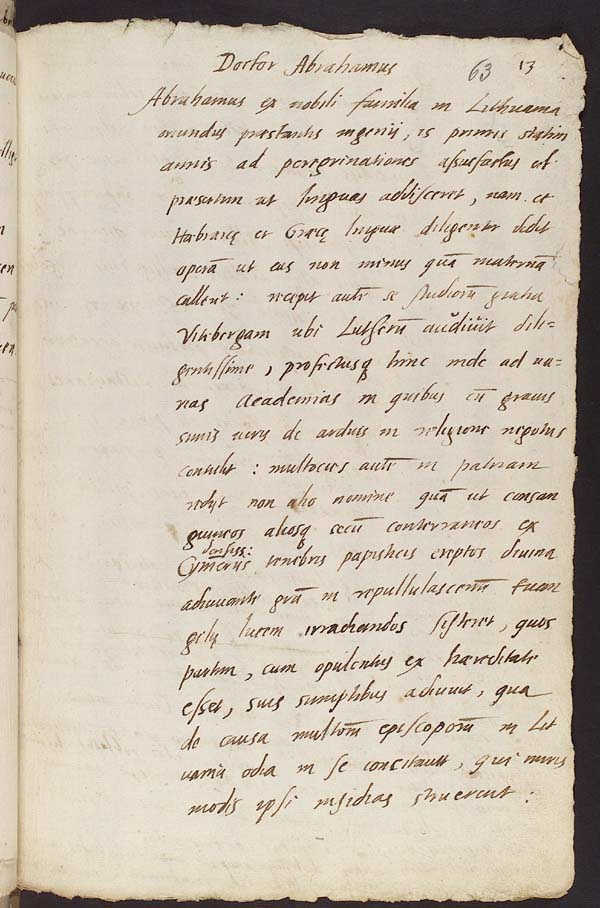 Doctor Abrahamus 63 13
Abrahamus ex nobili familia in Lithuania
oriundus præstantis ingenij, is primis statim
annis ad peregrinationes assuefactus est
præsertim ut linguas addisceret, nam et
Hæbraicę et Græcę linguæ diligenter dedit
operā ut eas non minus quā maternā
calleret: recepit autē se studiorū gratia
Vitebergam ubi Lutherū audiuit dili-
gentissime, profectusq hinc inde ad ua-
rias Academias in quibus cū grauis
simis uiris de arduis in religione negotijs
contulit: multocies autē in patriam
redijt non alio nomine quā ut consan
guineos aliosq secū conterraneos ex
densiss:
Cymerijs tenebris papisticis ereptos diuina
adiuuante grā in repullulascentē Euan
gelij lucem irradiandos sisteret, quos
partim, cum opulentus ex hæreditate
esset, suis sumptibus adiuuit, qua
de causa multorū episcoporū in Lit
uania odia in se concitauit, qui miris
modis ipsi insidias struerent: